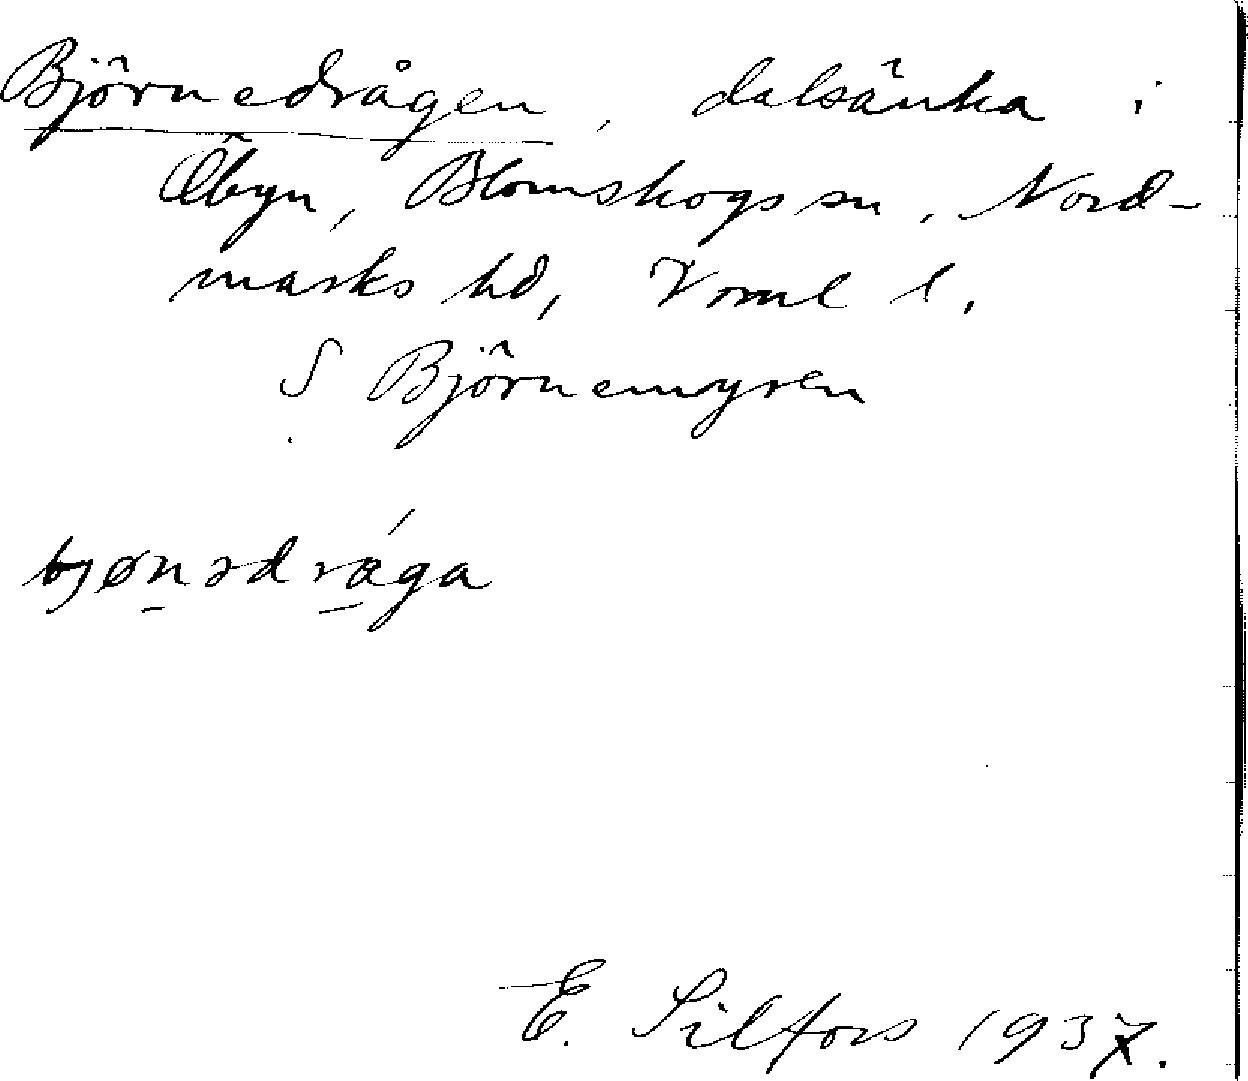 Björnedrågen, dalsänka i
Öbyn, Blomskogs sn, Nord-
marks hd, Vrml l.
S Björnemyren
bjønədråga
E. Silfors 1937.